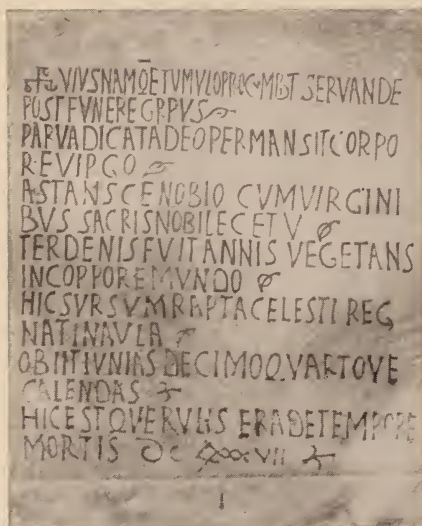 VIVSNAMQETVMVLOPROCVMBT SERVANDE
POST FVNERE CRPVS
PARVADICATADEOPERMANSITCORPO
REVIRGO
ASTANSCENOBIO CVMVIRGINI
BVS SACRISNOBILECETV
TERDENISFVITANNIS VEGETANS
INCORPOREMVNDO
HICSVRSVMRAPTACELESTI REG
NATINAVLA
OBIITIVNIASDECIMOQVARTOVE
CALENDAS
HICESTQVERVLIS ERADETEMPORE
MORTIS DC VII